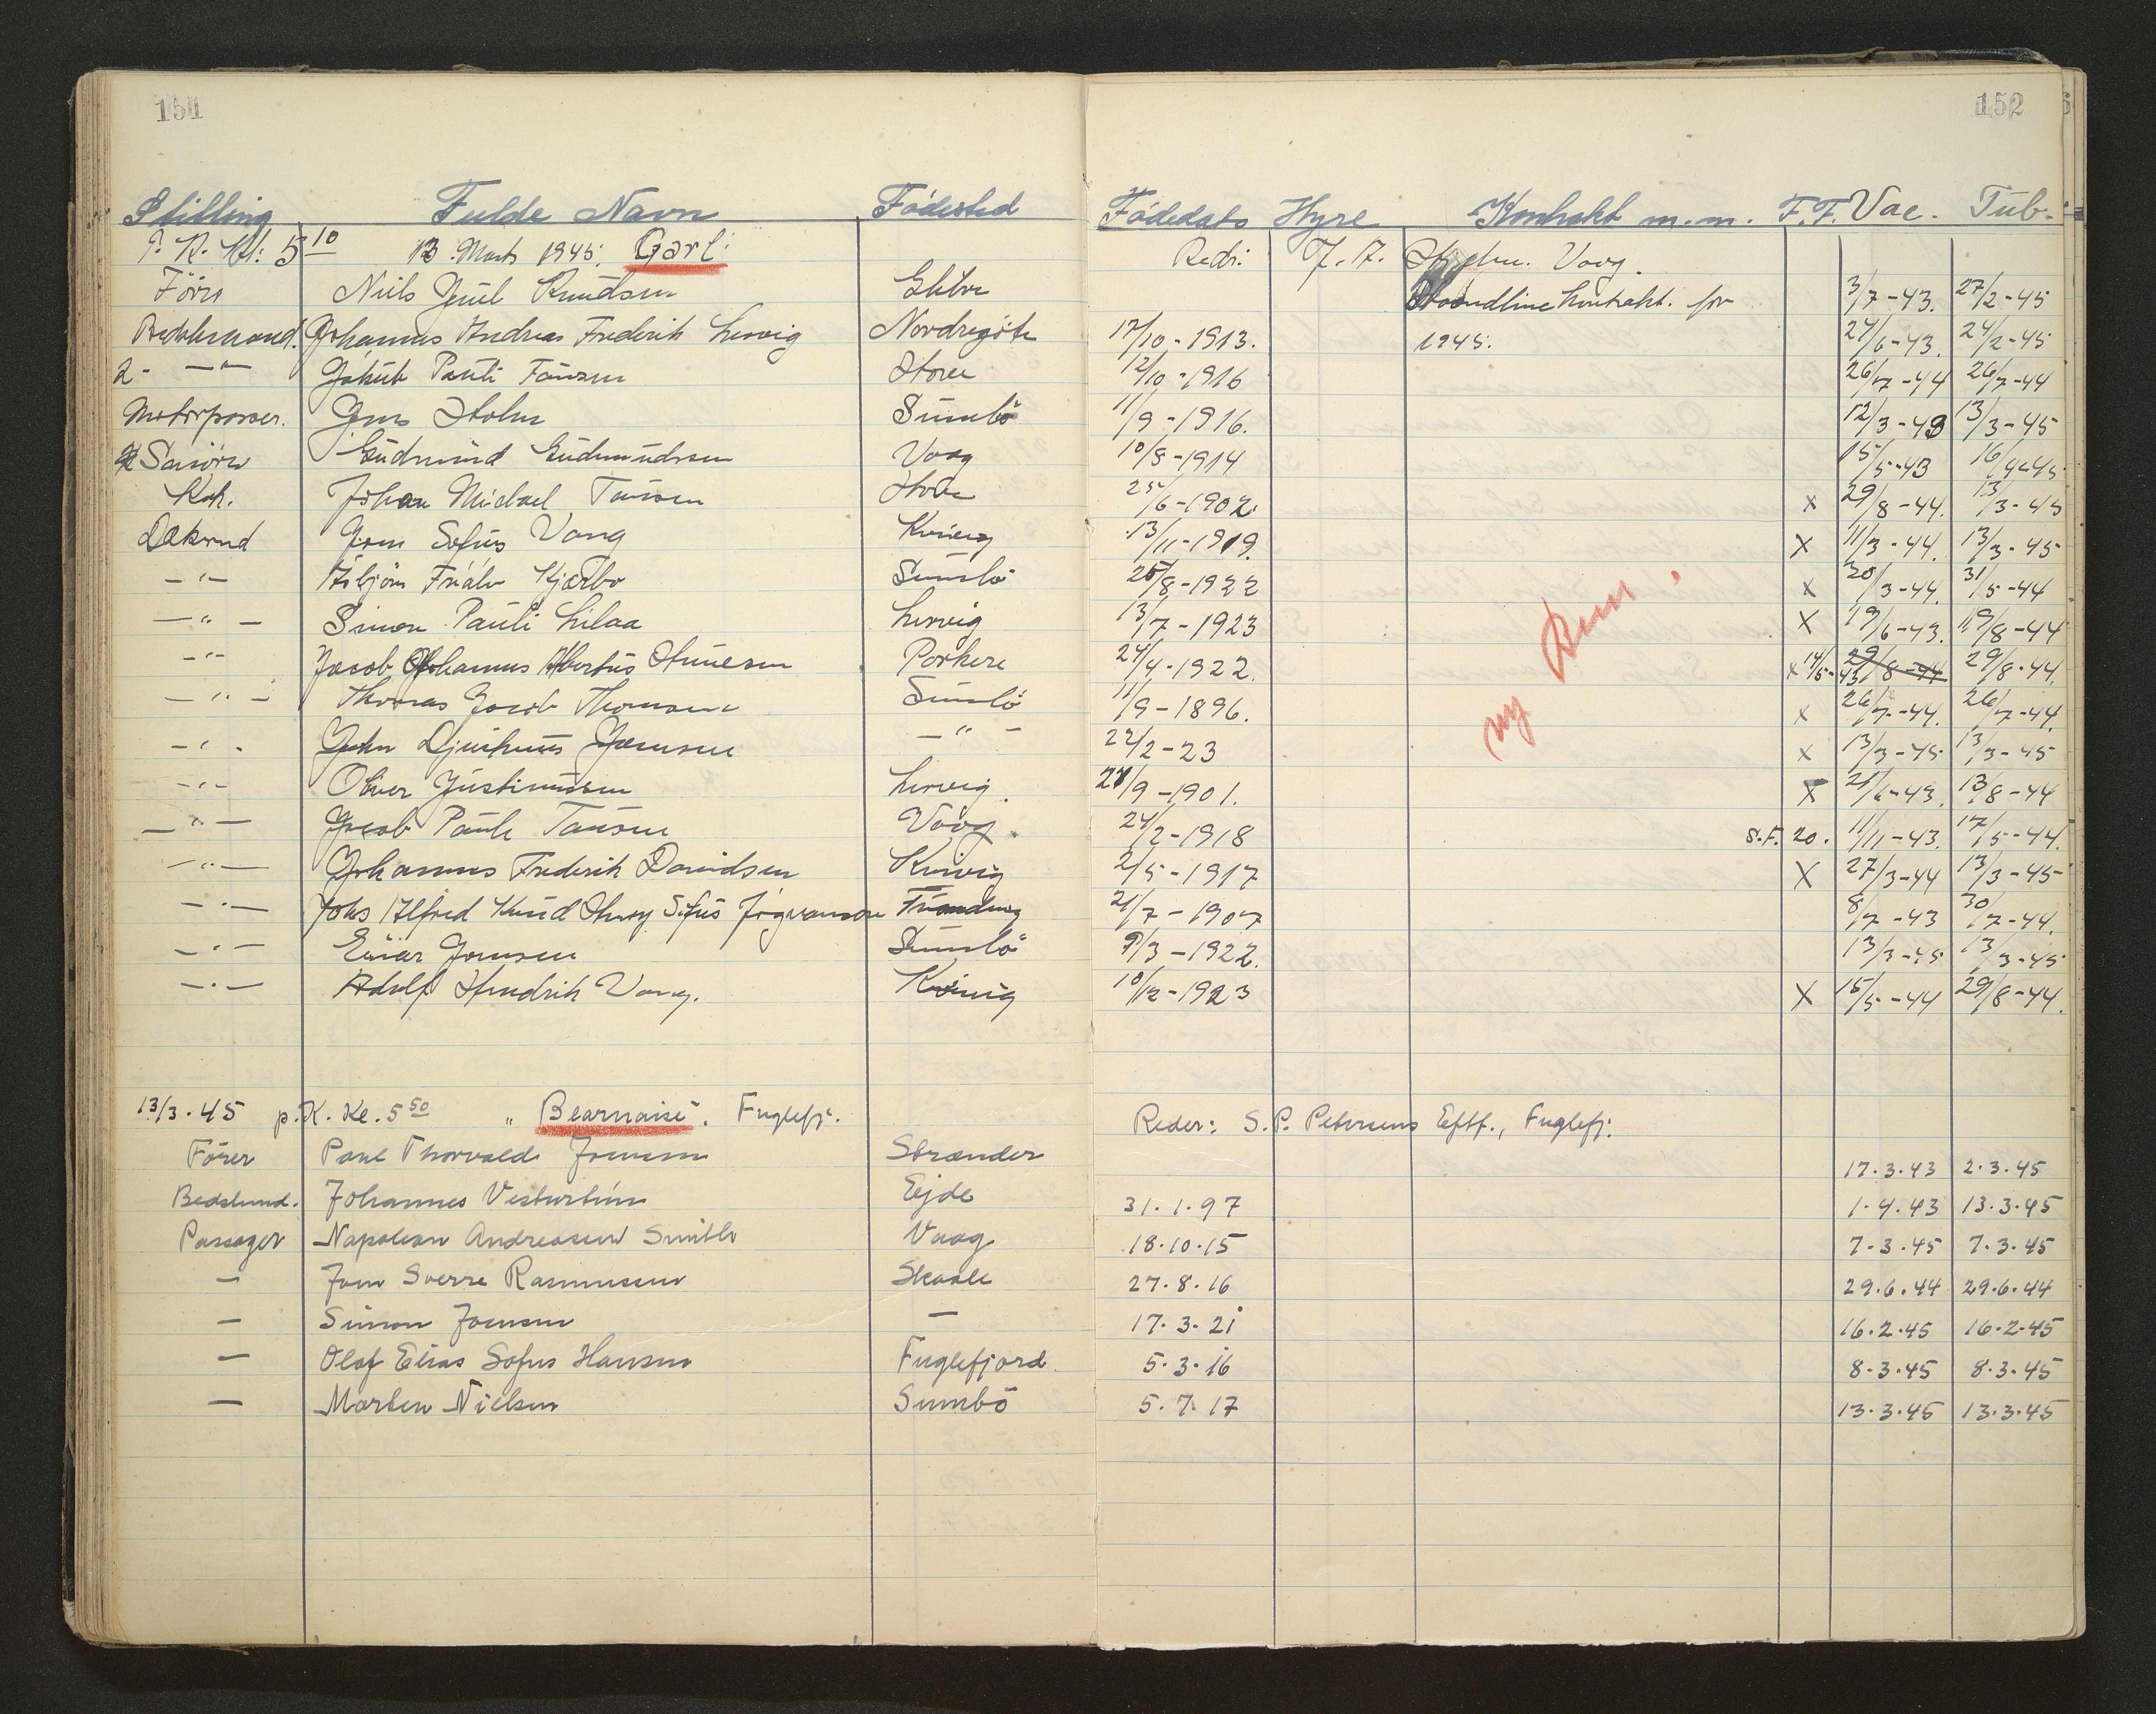 151
152
Stilling Fulde Navn Födested Födedato Hyre Kontrakt m.m. F.F. Vac. Tub.
P. K. Kl: 5 10 13 Marts 1945. Garl: Redr: J. F. Vaag.
Förer Niels Juul Knudsen kontrakt. for 3/7-43. 27/2-45
Bedstemand. Johannes Andreas Frederik Lervig Nordregöte 17/10-1913. 1945. 24/6-43. 24/2-45
2- -"- Jakub Pauli Tausen Hove 12/10-1916 26/7-44 26/7-44
Motorpasser. Jens Holm Sumbö 11/9-1916. 12/3-43 13/3-45
Gudmund Gudmundssen Vaag 10/8-1914 15/5-43 16/4-45
Kok. Johan Michael Tausen Hove 25/6-1902. x 29/8-44. 13/3-45
Dæksmd Jom Sofus Vang Kvivig 13/11-1919. x 11/3-44. 13/3-45
-"- Asbjörn Fridlv Kjærbo Sumbö 25/8-1922 x 20/3-44. 31/5-44
-"- Simon Pauli Lilaa Lervig 13/7-1923 x 19/6-43. 19/8-44
-"- Jacob Johannus Albertus Porkere 24/4-1922. x 14/5-43 29/8-44 29/8-44.
-"- Thomas Jacob Thomsen Sumbö 11/9-1896. x 26/7-44. 26/7-44.
-"- John Djurhuus Joensen -"- 22/2-23 x 13/3-45 13/3-45
-"- Oliver Justinussen Lervig. 27/9-1901. x 21/6-43. 13/8-44
-"- Jacob Paule Tausen Vaag. 24/2-1918 S.F. 20. 11/11-43. 17/5-44.
-"- Johannes Frederik Davidsen Kvivig 2/5-1917 x 27/3-44 13/3-45
-"- Johs Alfred Knud Sofus Jógvansson 21/7-1907 8/7-43 30/7-44.
-"- Einar Joensen Sumbö 9/3-1922. 13/3-45 13/3-45
-"- Adolf Hendrik Vang. Kvivig 10/12-1923 x 15/5-44 29/8-44.
ny
13/3.45 p.K. Kl. 5 50 "Bearnaise". Fuglefj. Reder: S.P. Petersens Eftf., Fuglefj.
Förer Paul Thorvald Joensen Strænder 17.3.43 2.3.45
Bedstmd. Johannes Vesturtún Ejde 31.1.97 1.4.43 13.3.45
Passager Napoleon Andreasen Smith Vaag 18.10.15 7.3.45 7.3.45
— Jom Sverre Rasmussen Skaale 27.8.16 29.6.44 29.6.44
— Simon Joensen — 17.3.21 16.2.45 16.2.45
— Olaf Elias Sofus Hansen Fuglefjord 5.3.16 8.3.45 8.3.45
— Morten Nielsen Sumbö 5.7.17 13.3.45 13.3.45